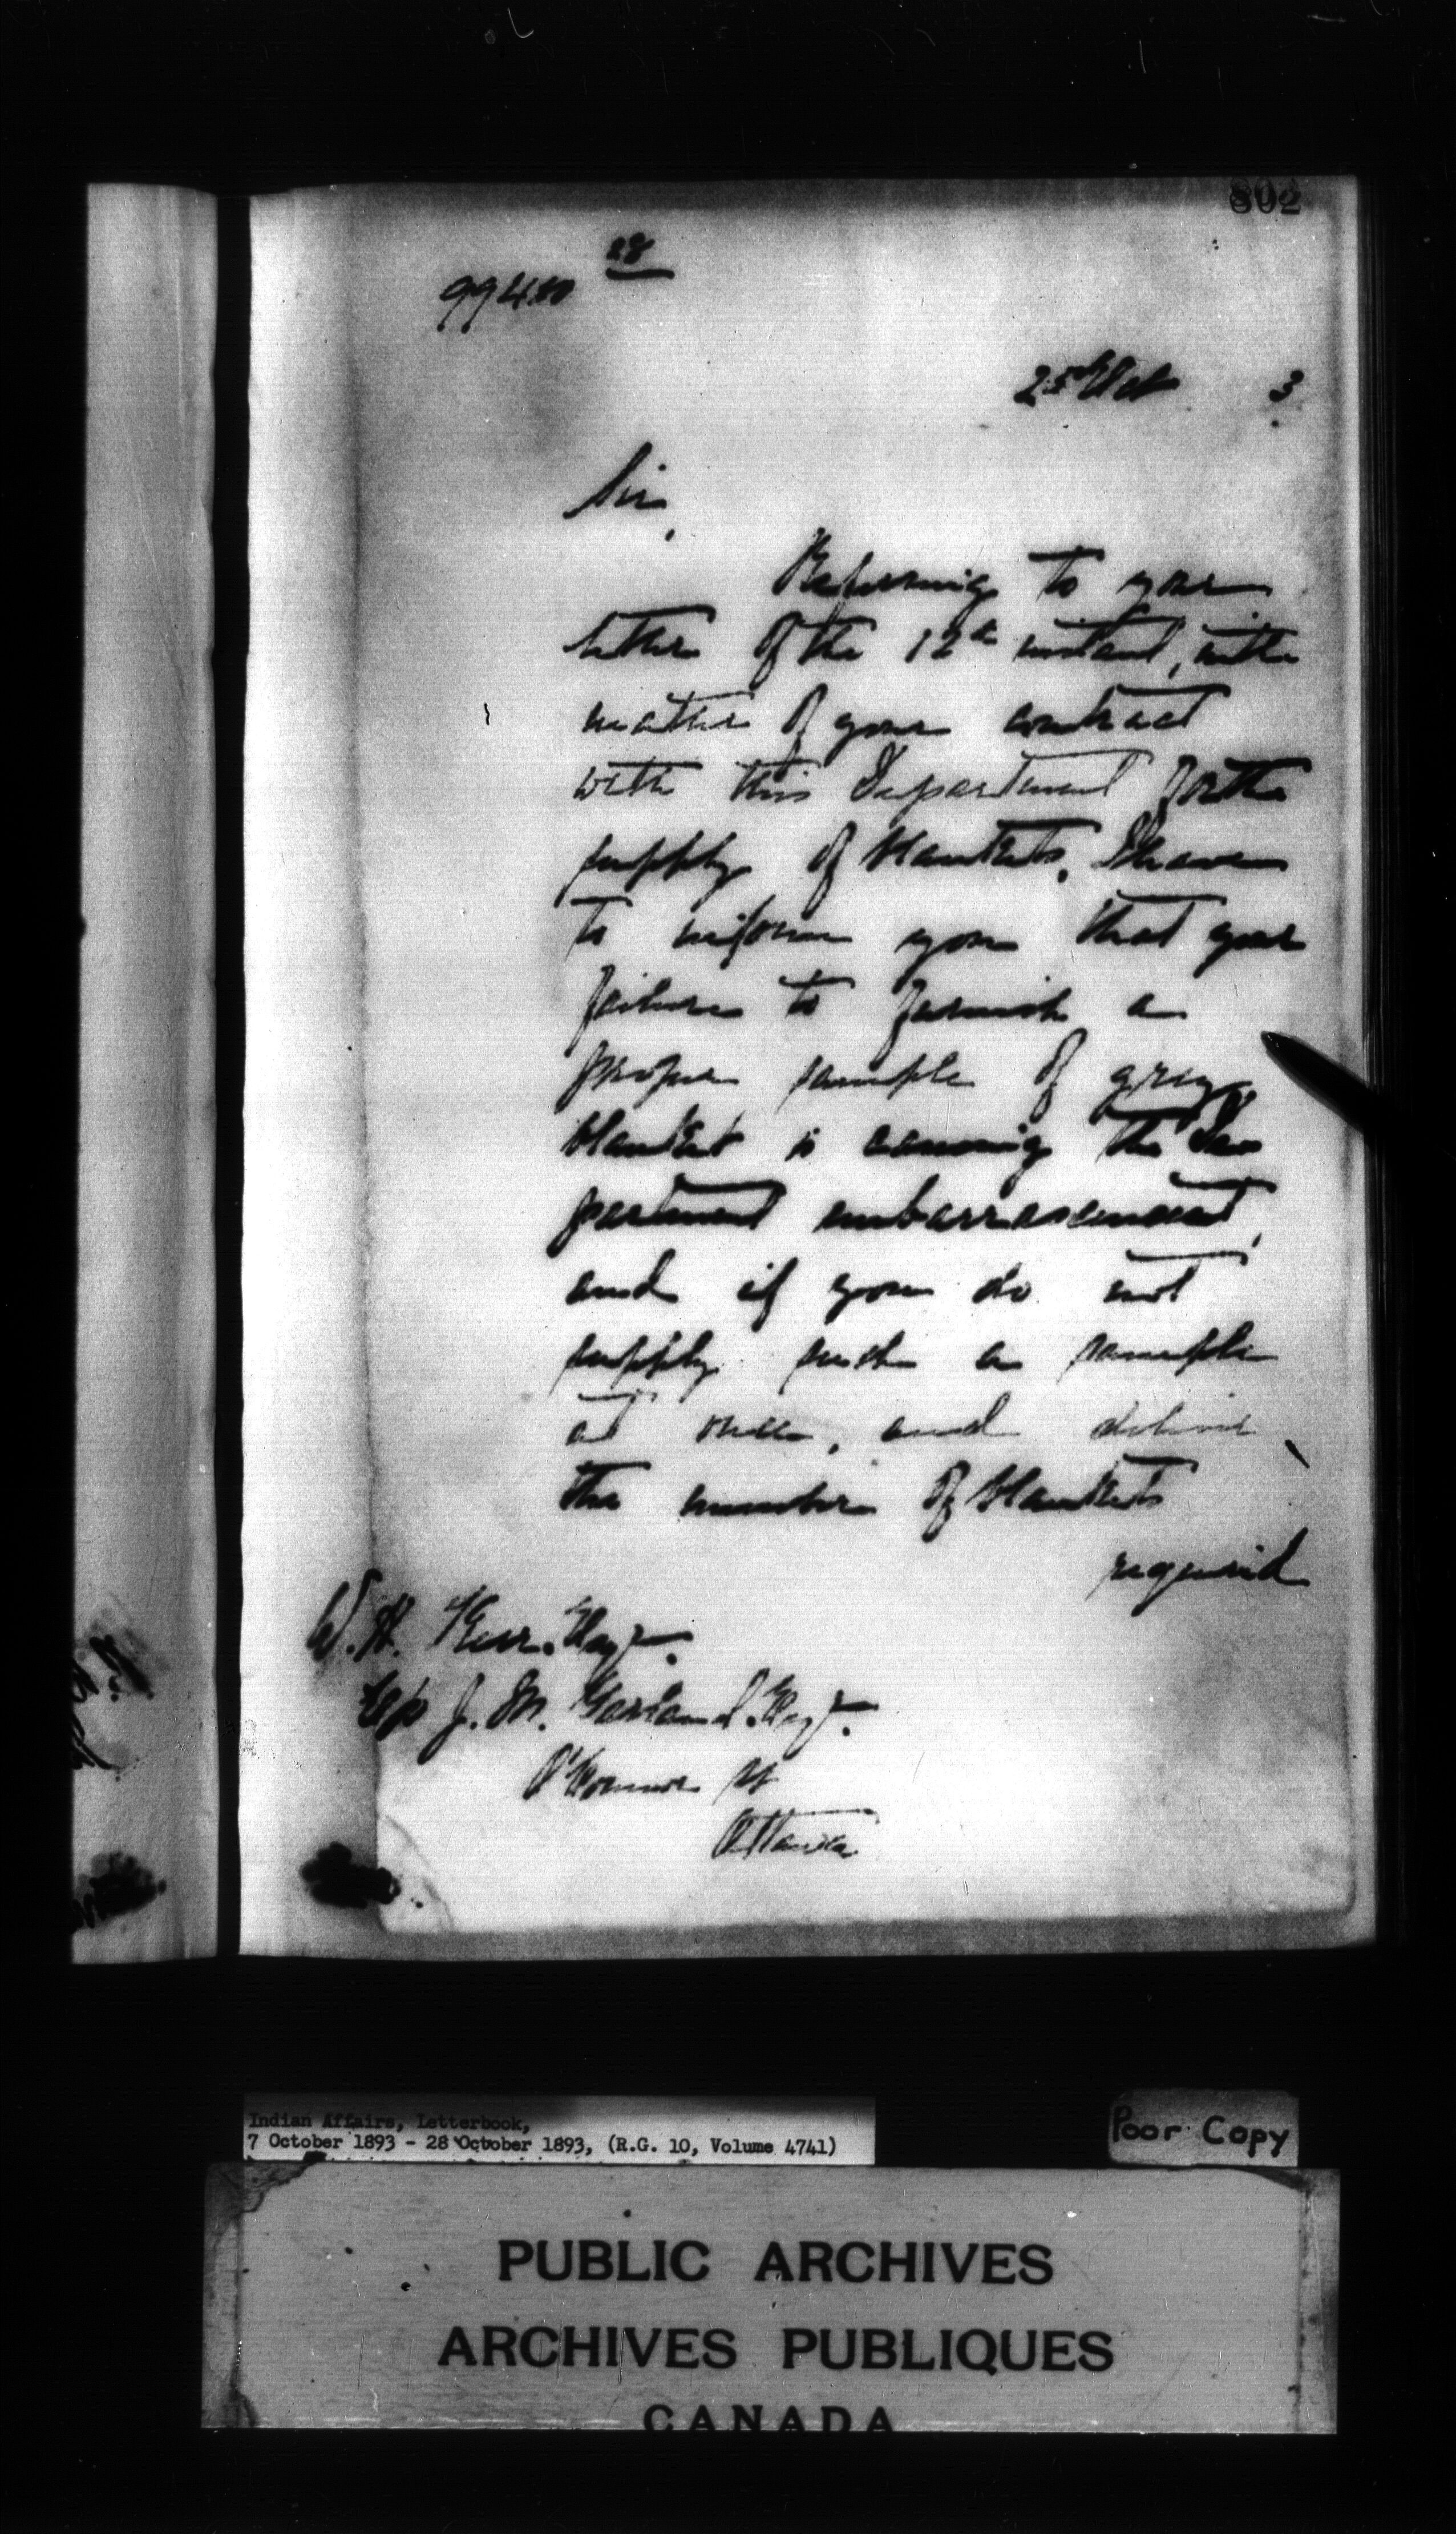 802
28
99480
25th Oct 3
Sir,
Referring to your
letter of the 12th instant, in the
matter of your contract
with this Department for the
supply of blankets, I have
to inform you that your
failure to furnish a
proper sample of grey
blanket is causing the De
partment embarrassment,
and if you do not
supply such a sample
at once, and deliver
the number of blankets
required
W. H. Kerr. Esqr.
c/o J. M. Garland. Esqr.
O'Connor St
Ottawa
Indian Affairs, Letterbook,
7 October 1893 - 28 October 1893, (R.G. 10, Volume 4741)
Poor Copy
PUBLIC ARCHIVES
ARCHIVES PUBLIQUES
CANADA